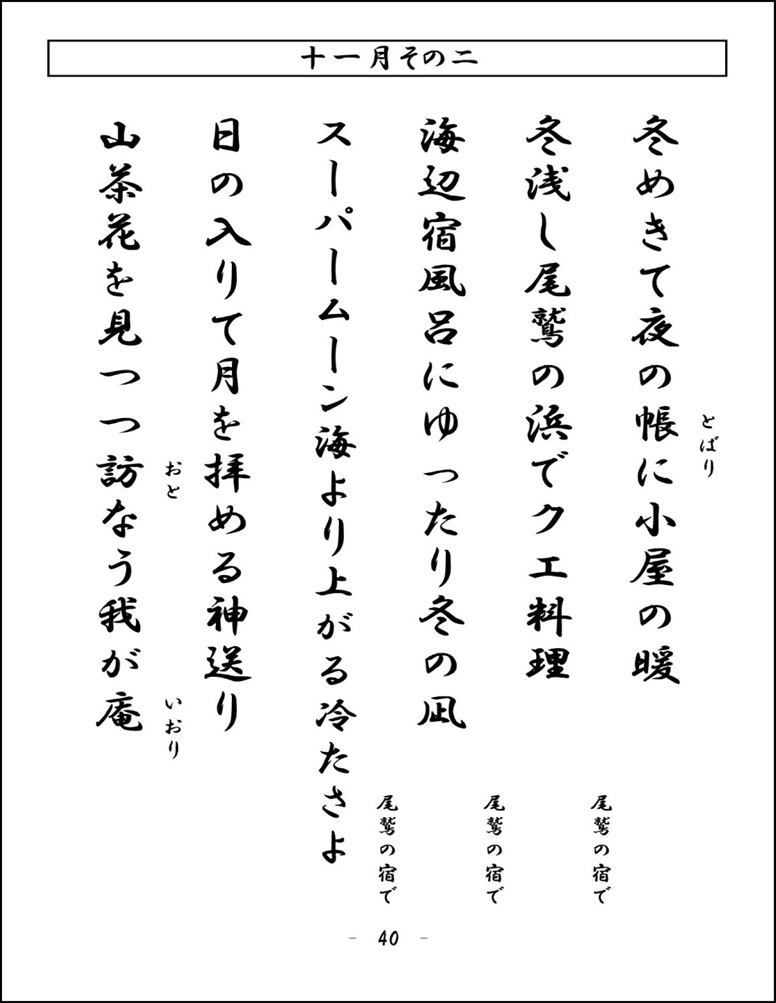 十一月その二
冬めきて夜の帳に小屋の暖
とばり
冬浅し尾鷲の浜でクエ料理
尾鷲の宿で
海辺宿風呂にゆったり冬の凪
尾鷲の宿で
スーパームーン海より上がる冷たさよ
尾鷲の宿で
日の入りて月を拝める神送り
山茶花を見つつ訪なう我が庵
おと
いおり
- 40 -